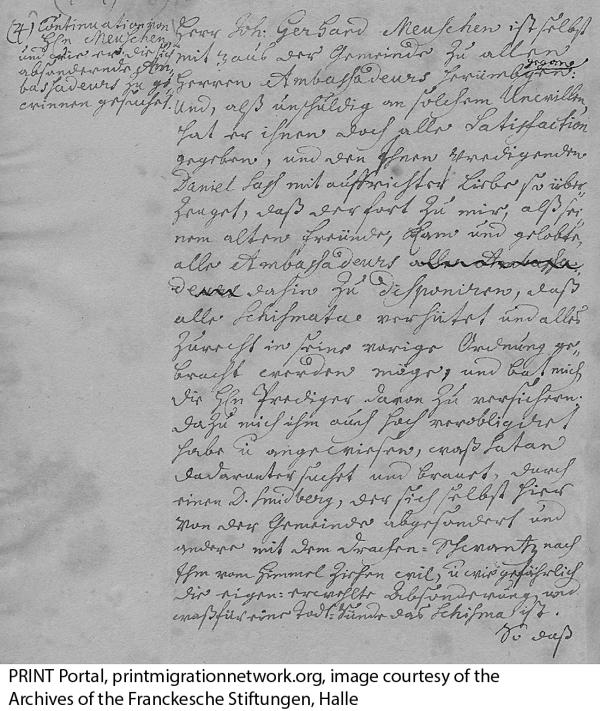 (4) Continuation von
HEn Meuschen
und wie er die sich
absondernde Am-
bassadeurs zu ge-
winnen gesuchet.
Herr Joh: Gerhard Meuschen ist selbst
mit aus der Gemeinde zu allen
Herren Ambassadeurs herumb gegangen:
und, alß unschuldig an solchem Unwillen,
hat er ihnen doch alle Satisfaction
gegeben, und den Ihnen Predigenden
Daniel mit auffrichter Liebe so über-
zeuget, daß der fort zu mir, alß sei-
nem alten Freunde, kam und gelobte,
alle Ambassadeurs
dahin zu disponiren, daß
alle Schismatae verhütet und alles
zurecht in seine vorige Ordnung ge-
bracht werden möge, und bat mich
die HEn Prediger davon zu versichern.
dazu mich ihm auch hoch verobligiret
habe u angewiesen, waß Satan
dadarunter suchet und brauet, durch
einen D. , der sich selbst hier
von der Gemeinde abgesondert und
andere mit dem Drachen-Schwantz nach
Ihm vom Himmel ziehen wil, u wie gefährlich
die eigen-erwehlte Absonderung, und
waß für eine Todt-Sünde das Schisma ist.
So daß
PRINT Portal, printmigrationnetwork.org, image courtesy of the
Archives of the Franckesche Stiftungen, Halle